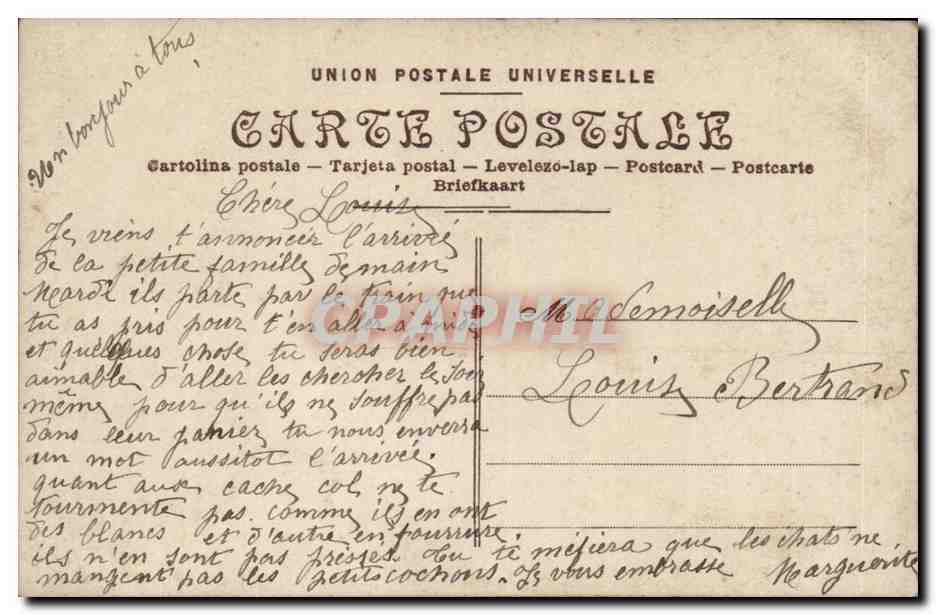 Un bonjour à tous
UNION POSTALE UNIVERSELLE
CARTE POSTALE
Cartolina postale — Tarjeta postal — Levelezö-lap — Postcard — Postcarte
Briefkaart
Chére Louise
Je viens t'annoncer l'arrivée
de la petite famille demain
Mardi ils parte par le train que
tu as pris pour t'en aller à midi
et quelques chose tu seras bien
aimable d'aller les chercher le soir
même pour qu'ils ne souffre pas
dans leur panier tu nous enverra
un mot aussitot l'arrivée.
quant aux cache col ne te
tourmente pas comme ils en ont
des blancs et d'autre en fourrure
ils n'en sont pas pressés. Tu te méfiera que les chats ne
mangent pas les petits cochons. Je vous embrasse Marguerite
Mademoiselle
Louise Bertrand
CPAPHIL